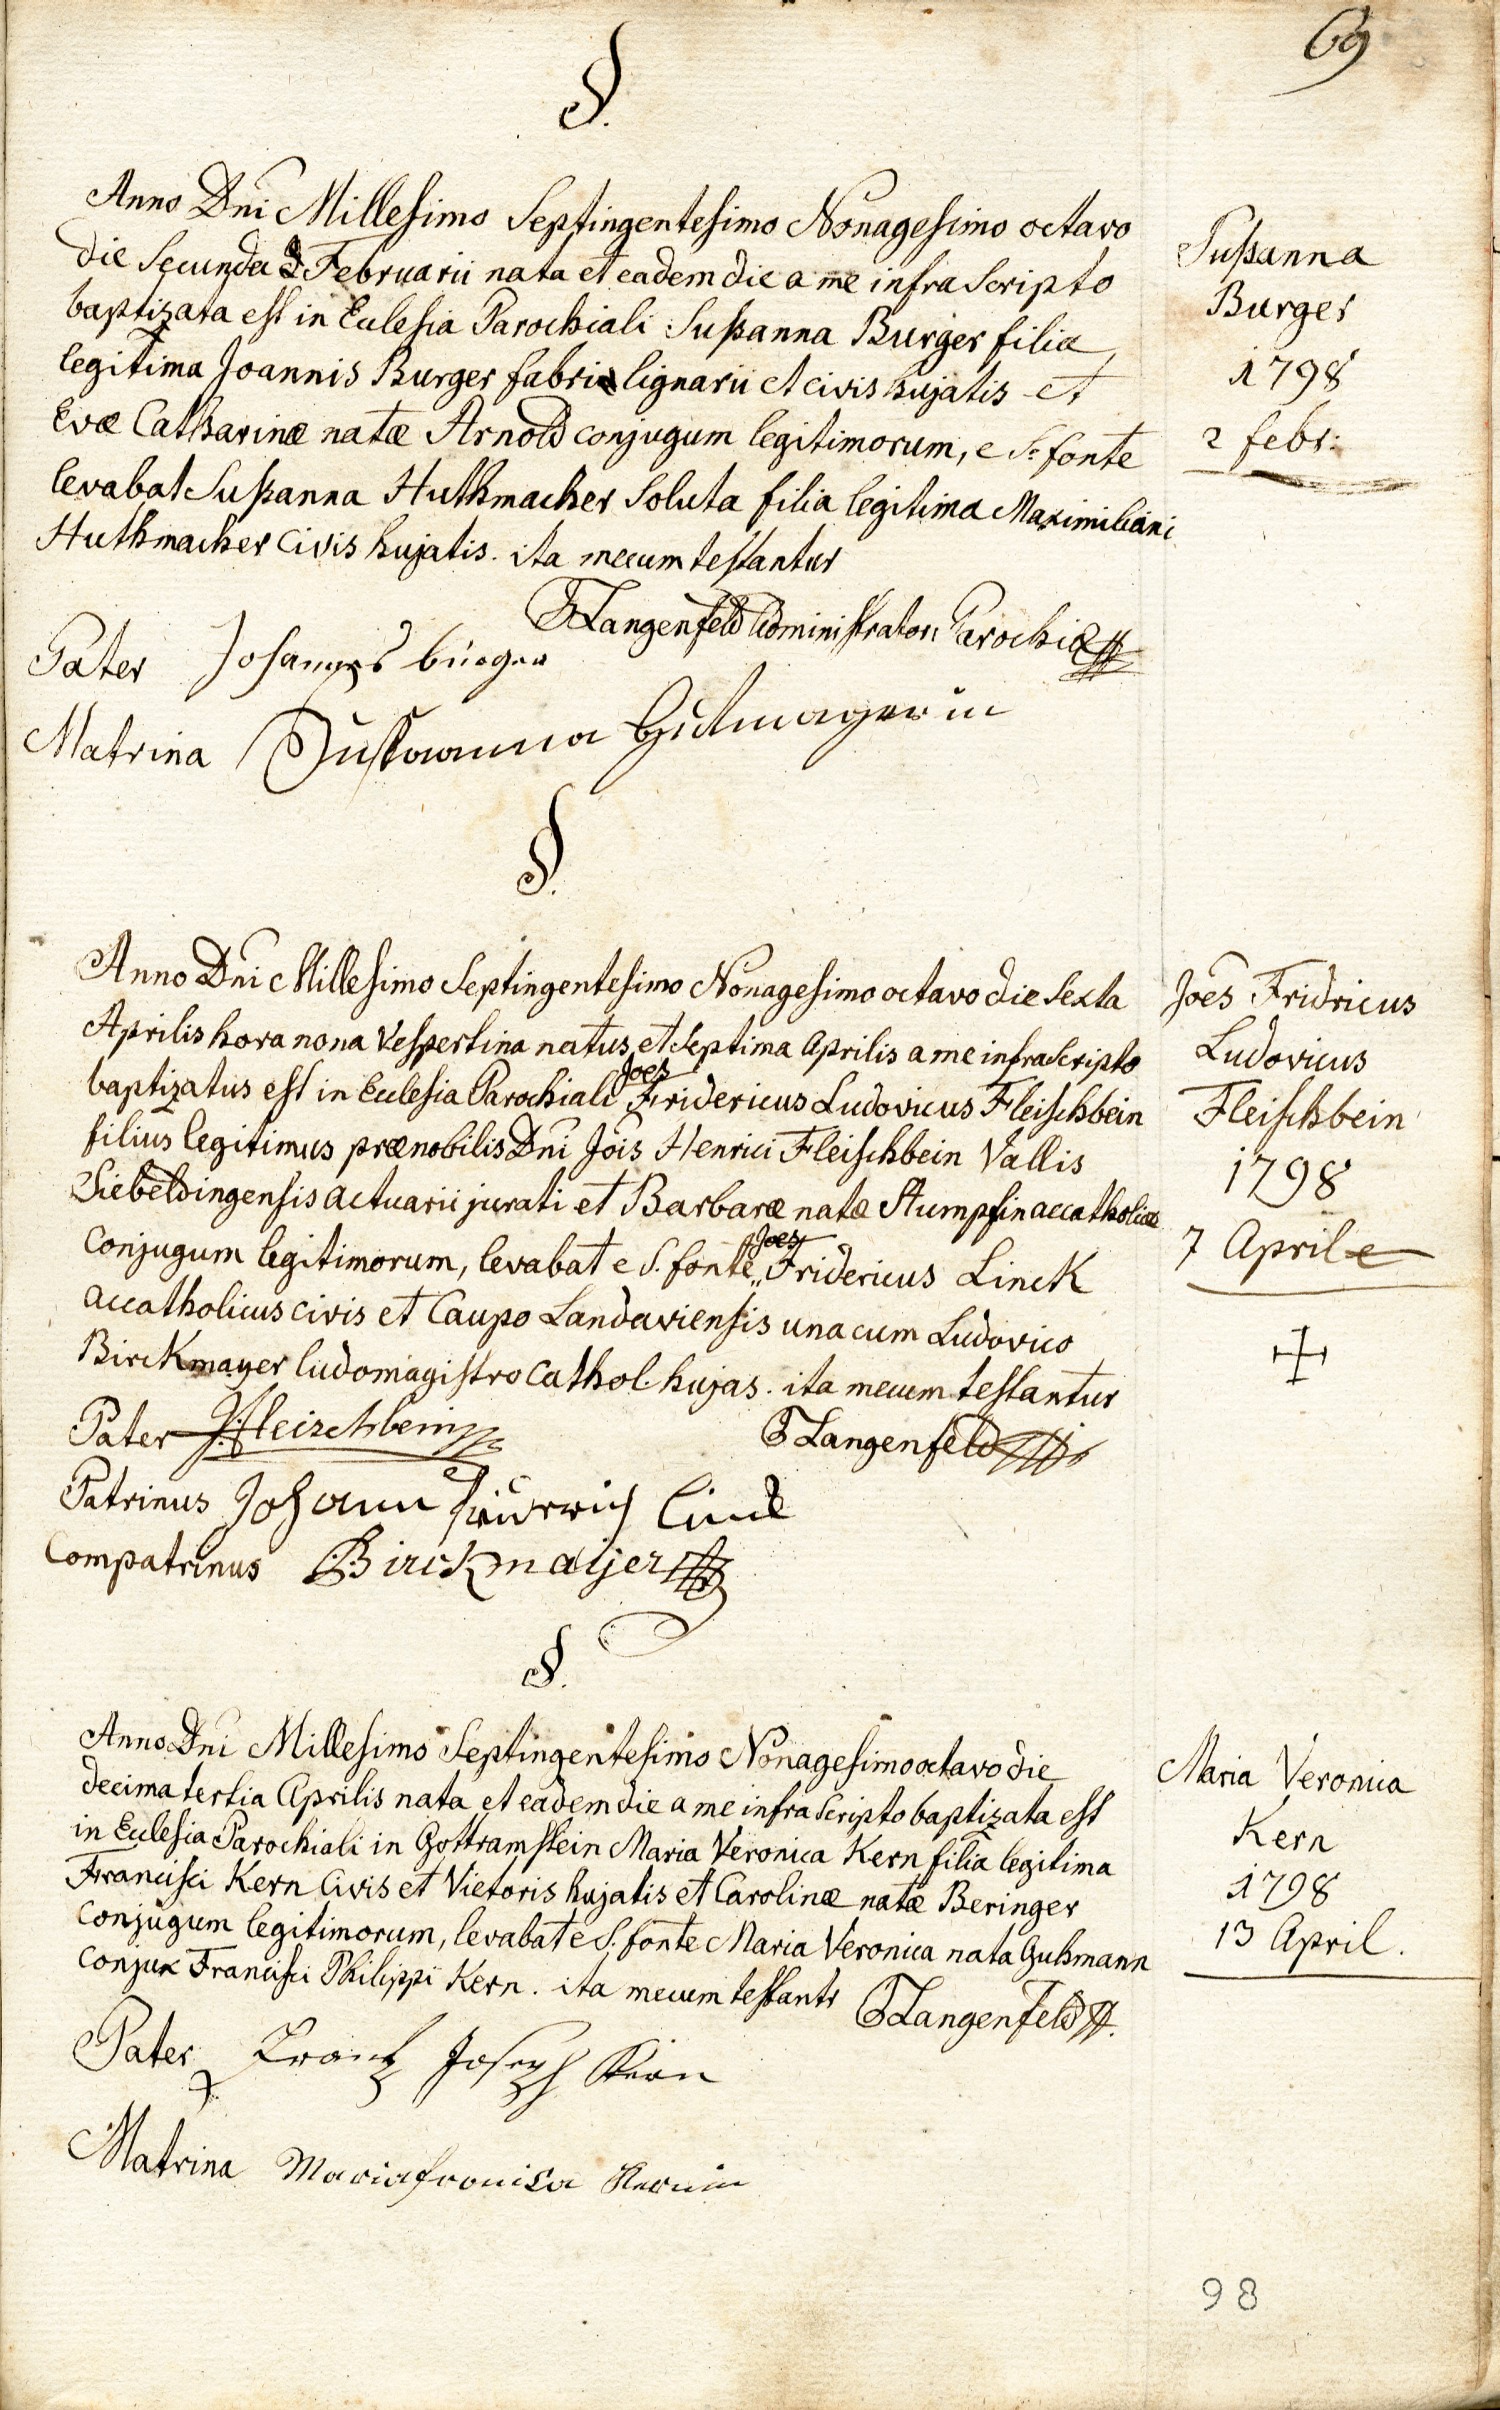 69
§.
Anno Dni Millesimo Septingentesimo Nonagesimo octavo
die Secunda Februarii nata et eadem die a me infra scripto
baptizata est in Eclesia Parochiali Sußanna Burger filia
legitima Joannis Burger fabri lignarii et civis hujatis et
Evæ Catharinæ natæ Arnold conjugum legitimorum, e S. fonte
levabat Sußanna Huthmacher Soluta filia legitima Maximiliani
Huthmacher Civis hujatis. ita mecum testantur
Langenfeld Administrator Parochiæ
Pater Johannes bürger
Matrina Sußanna Hutmagerin
Sußanna
Burger
1798
2 febr:
§.
Anno Dni Millesimo Septingentesimo Nonagesimo octavo die Sexta
Aprilis hora nona Vespertina natus, et Septima Aprilis a me infra scripto
baptizatus est in Eclesia Parochiali Joes Fridericus Ludovicus Fleischbein
filius legitimus prænobilis Dni Jois Henrici Fleischbein Vallis
Siebeldingensis actuarii jurati et Barbaræ natæ Stumpfin accatholicæ
Conjugum legitimorum, levabat e S. fonte Joes Fridericus Linck
accatholicus civis et Caupo Landaviensis una cum Ludovico
Birckmayer ludomagistro Cathol. hujas. ita mecum testantur
Langenfeld
Pater Fleischbein
Patrinus Johann Friderich Linck
Compatrinus Birckmaijer
Joes Fridricus
Ludovicus
Fleischbein
1798
7 Aprile
§.
Anno Dni Millesimo Septingentesimo Nonagesimo octavo die
decima tertia Aprilis nata et eadem die a me infra scripto baptizata est
in Eclesia Parochiali in Gottramstein Maria Veronica Kern filia legitima
Francisci Kern Civis et Vietoris hujatis et Carolinæ natæ Beringer
Conjugum legitimorum, levabat e S. fonte Maria Veronica nata Guhmann
Conjux Francisci Philippi Kern. ita mecum testantr
Langenfeld
Pater Frantz Joseph Kern
Matrina Maria fronica Kernin
Maria Veronica
Kern
1798
13 April.
98